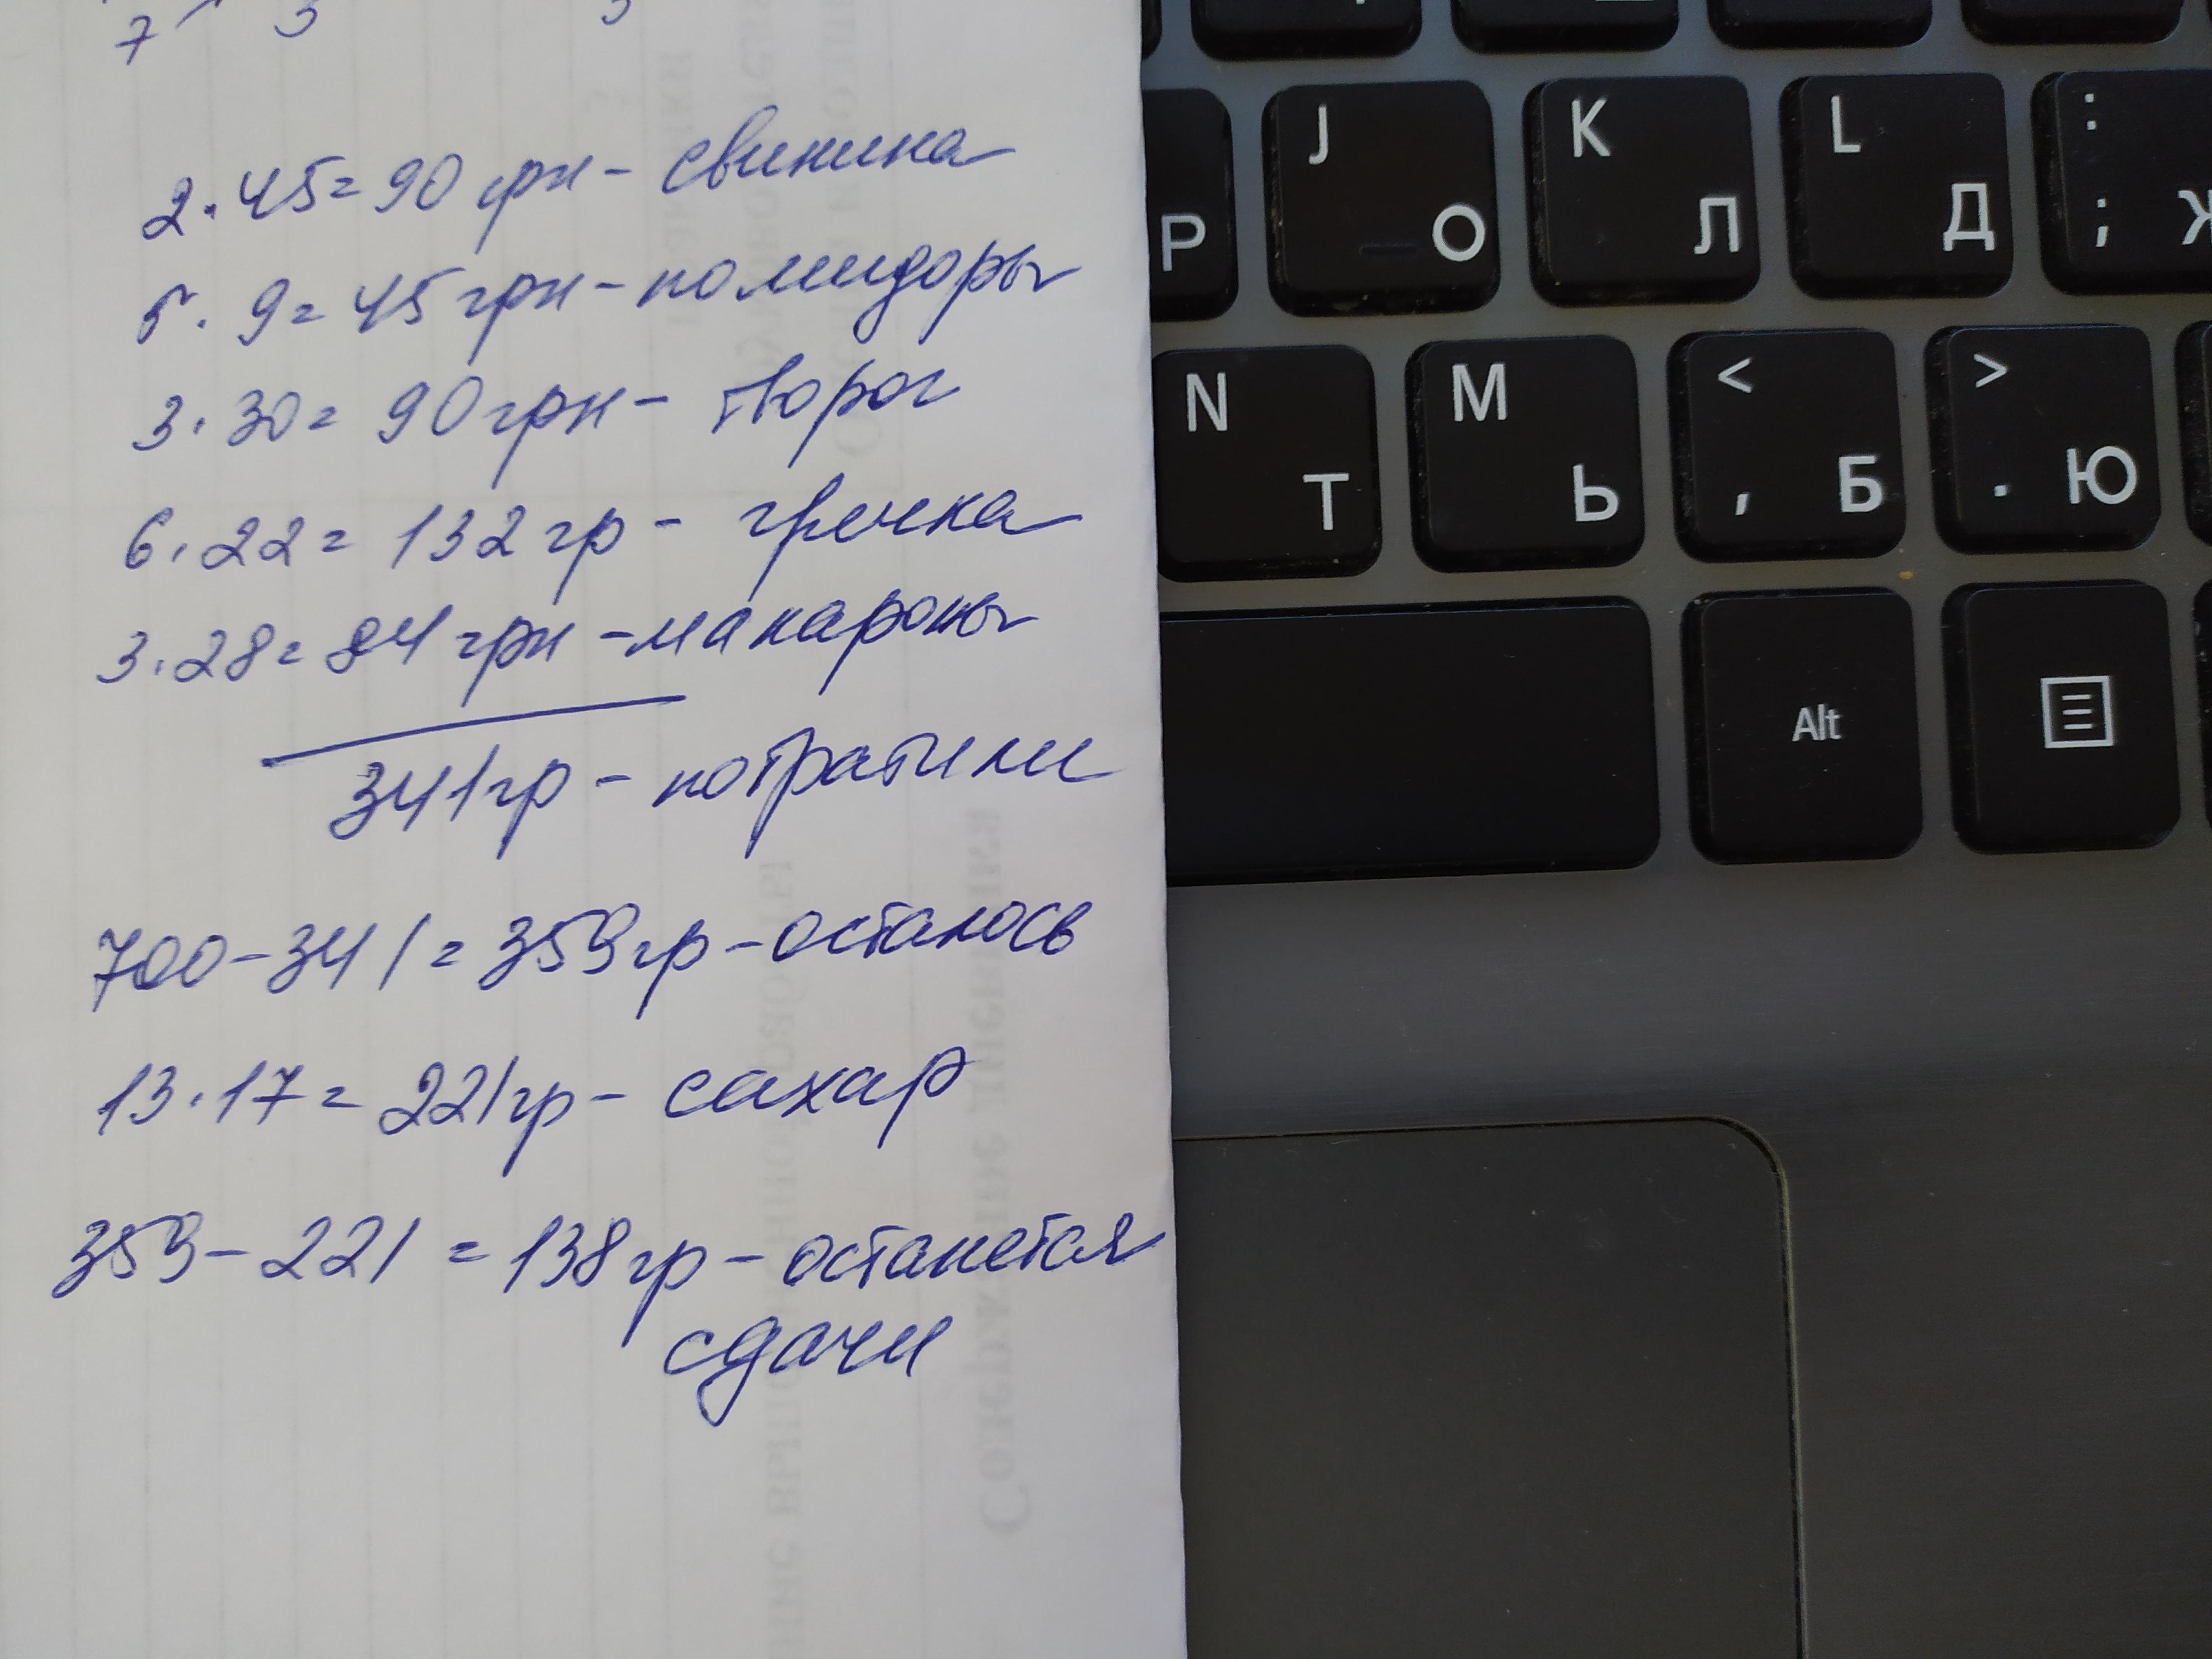 7 3 3
2·45=90 грн - свинина
5·9=45 грн - помидоры
3·30=90 грн - творог
6·22=132 гр - гречка
3·28=84 грн - макароны
341 гр - потратили
700-341=359 гр - осталось
13·17=221 гр - сахар
359-221=138 гр - останется
сдачи
J О
K Л
L Д
: ; Ж
Р
N Т
M Ь
< , Б
> . Ю
Alt